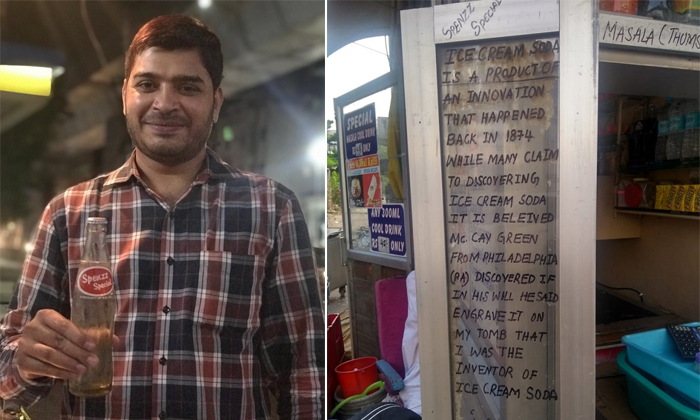 Spenzz
Special
SPENZZ
SPECIAL
ICE CREAM SODA
IS A PRODUCT OF
AN INNOVATION
THAT HAPPENED
BACK IN 1874
WHILE MANY CLAIM
TO DISCOVERING
ICE CREAM SODA
IT IS BELEIVED
Mc CAY GREEN
FROM PHILADELPHIA
(PA) DISCOVERED IF
IN HIS WILL HE SAID
ENGRAVE IT ON
MY TOMB THAT
I WAS THE
INVENTOR OF
ICE CREAM SODA
MASALA (THUMS
SPECIAL
MASALA COOL DRINK
ONLY
ANY 300ML
COOL DRINK
RS ONLY